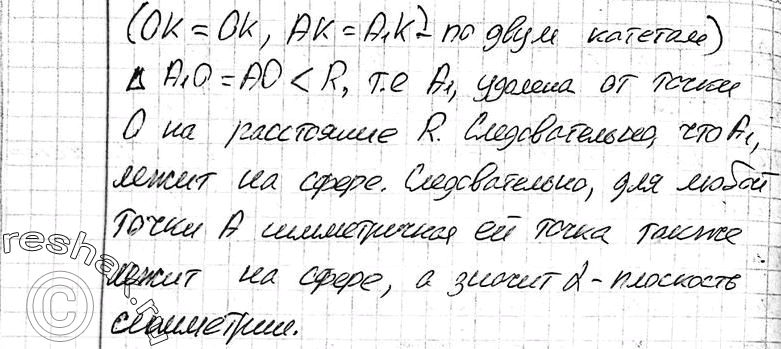 (OK = OK, AK = A₁K - по двум катетам)
Δ A₁O = AO < R, т.е A₁, удалена от точки
O на расстояние R. Следовательно, что A₁,
лежит на сфере. Следовательно, для любой
точки A симметричная ей точка также
лежит на сфере, а значит α - плоскость
симметрии.
reshak.ru
©